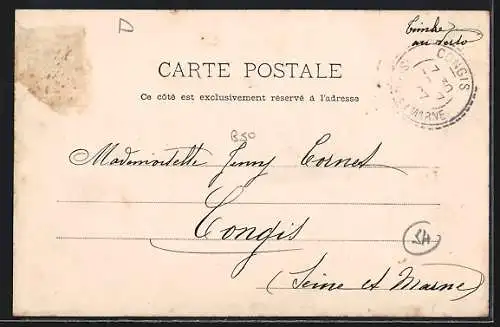 D
Timbre
au verso
CARTE POSTALE
Ce côté est exclusivement réservé à l'adresse
CONGIS
MARNE
B50
Mademoiselle Jenny Cornet
Congis
(Seine et Marne)
SH